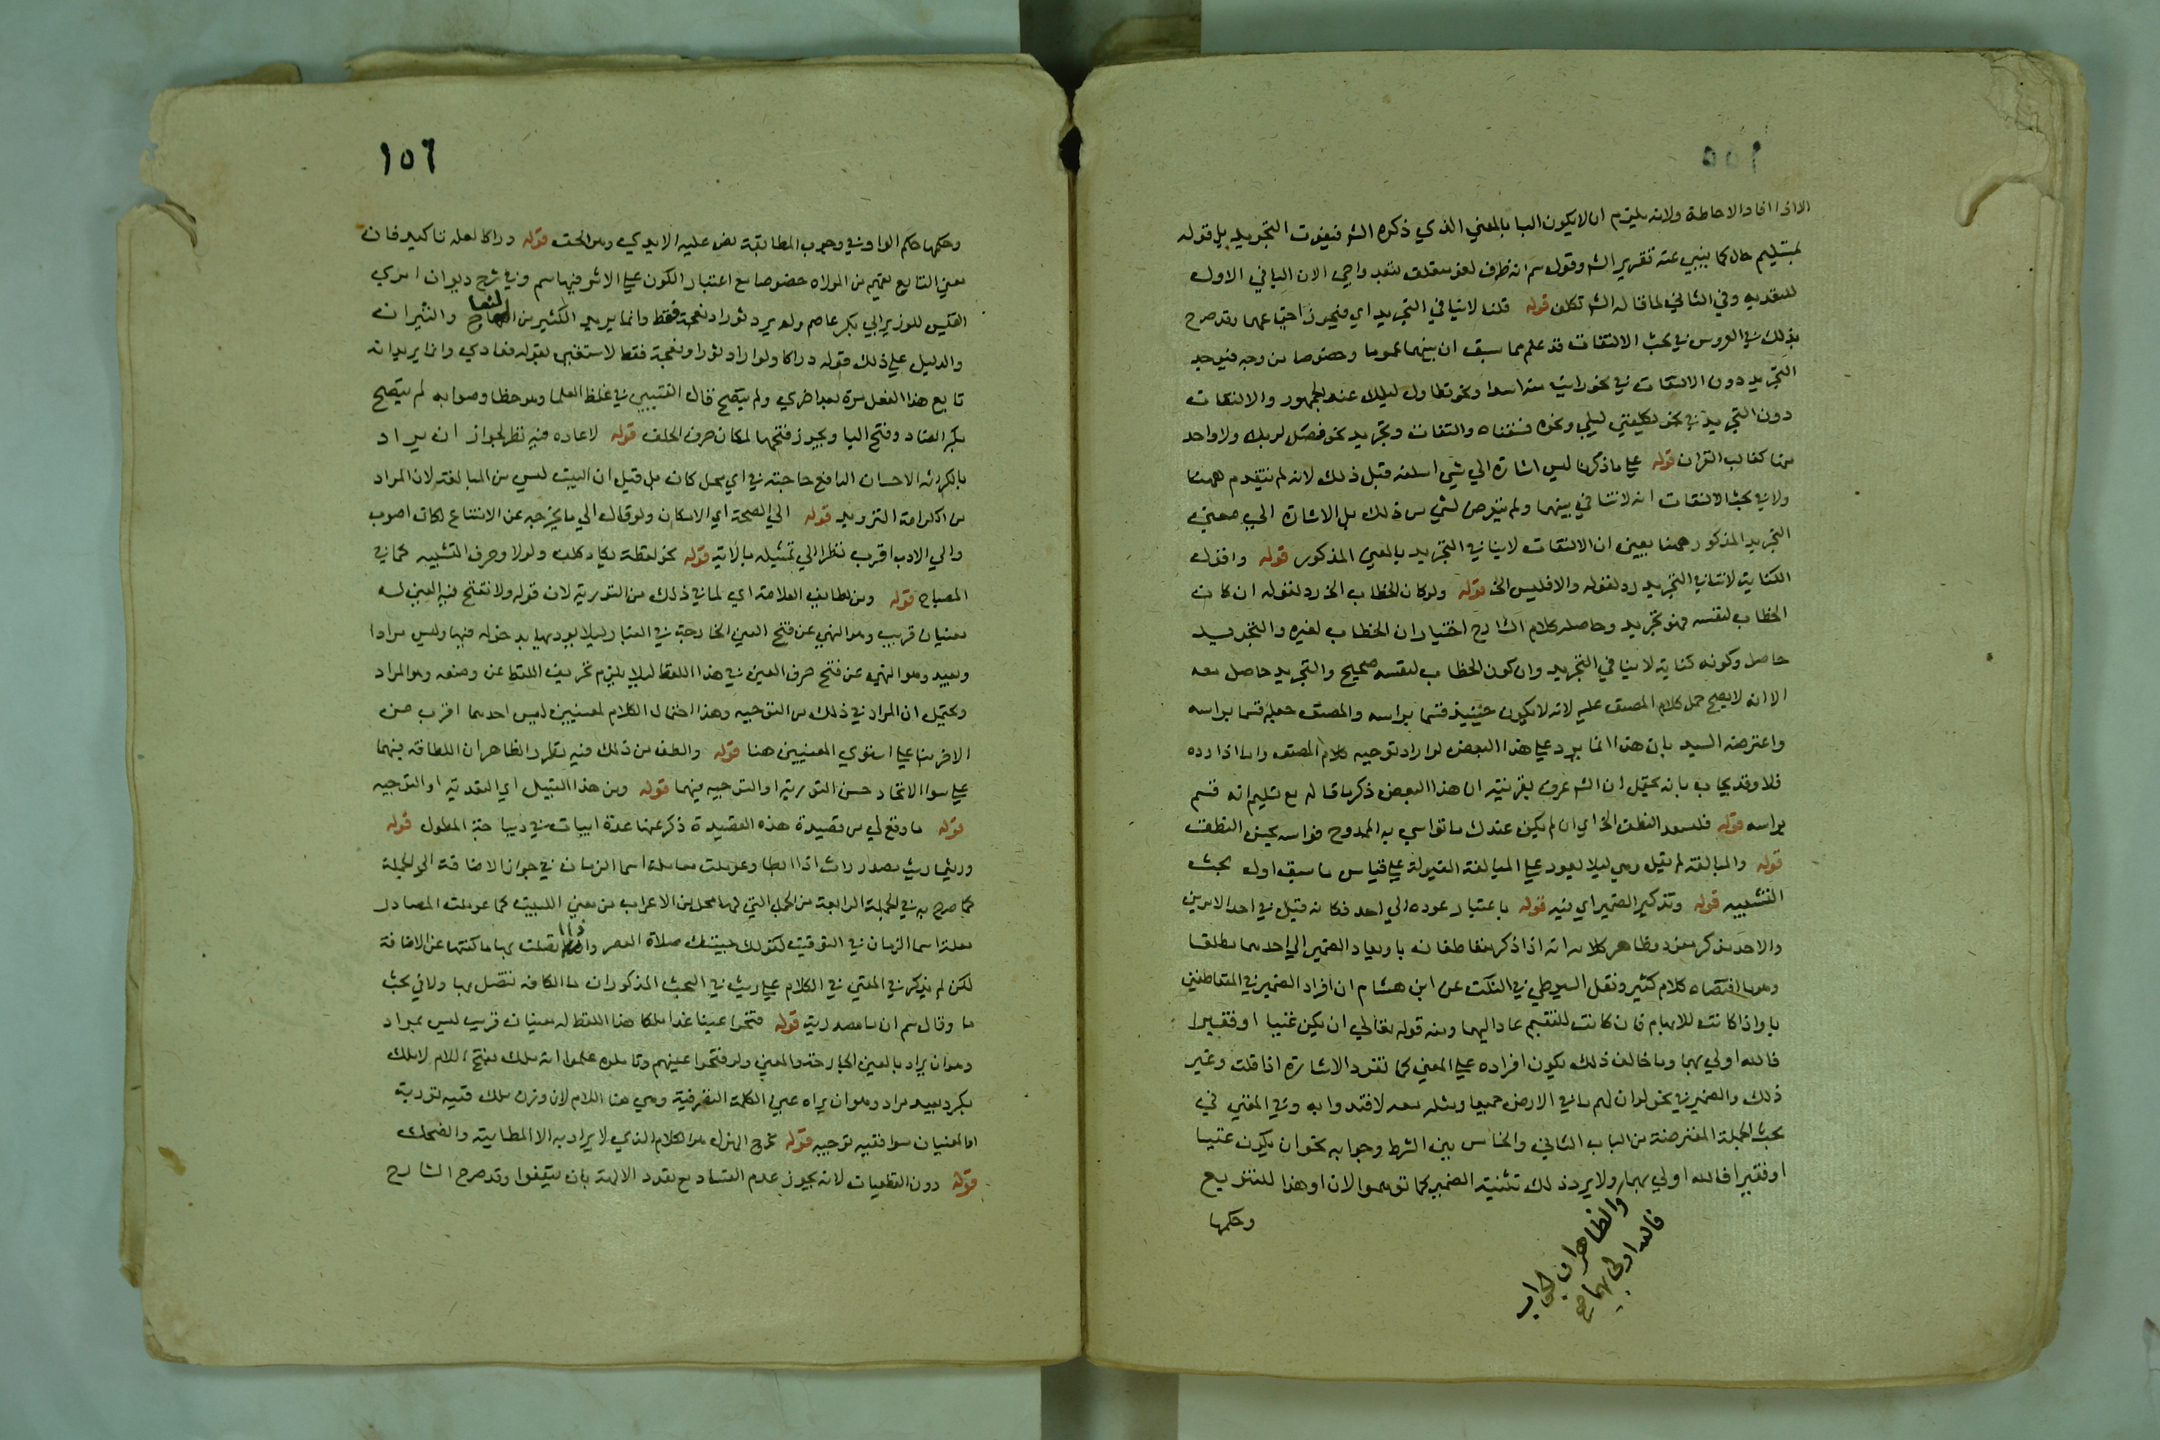 ١٥٥
الاذا افاد الاحاطة ولانه يلزم ان لا يكون البا بالمعني الذي ذكره الشر فيفوت التجريد بل قوله
تقرير الشر وقول سم انه ظرف لغو متعلق الان البا في الاول
للتعدية وفي الثاني لما قاله الشر تكلف قوله قلنا لا ينافي التجريد اي فيجوز اجتماعهما وقد صرح
بذلك في العروس في بحث الالتفات قد علم مما سبق ان بينهما عموما وخصوصا من وجه فيوجد
التجريد دون الالتفات في نحو رايت منه اسدا ونحو تطاول ليلك عند الجمهور والالتفات
دون التجريد في نحو تكلفني ليلي ونحوه فسقناه والتفات وتجريد نحو فصل لربك ولا واحد
منها كغالب القران قوله علي ما ذكرنا ليس اشارة الي شي اسلفه قبل ذلك لانه لم يتقدم ههنا
ولا في بحث الالتفات انه لا تنافي بينهما ولم يتعرض لشي من ذلك بل الاشارة الي معني
التجريد المذكور ههنا يعني ان الالتفات لا ينافي التجريد بالمعني المذكور قوله واقول
الكناية لا تنافي التجريد رد لقوله والا فليس الخ قوله ولو كان الخطاب الخ رد لقوله ان كان
الخطاب لنفسه فهو تجريد وحاصل كلام الشارح اختيار ان الخطاب لغيره والتجريد
حاصل وكونه كناية لا ينافي التجريد وان كون الخطاب لنفسه صحيح والتجريد حاصل معه
الا انه لا يصح حمل كلام المصنف عليه لانه لا يكون حينيذ قسما براسه والمصنف جعله قسما براسه
واعترضه السيد بان هذا انما يرد علي هذا البعض لو اراد توجيه كلام المصنف واما اذا رده
فلا وقد يجاب بانه يحتمل ان الشر عرف بقرينة ان هذا البعض ذكر ما قاله مع تسليم انه قسم
براسه قوله فليسعد النطق الخ اي ان لم يكن عندك ما تواسي به الممدوح فواسه بحسن النطق
قوله والمبالغة لم يقل وهي ليلا يعود علي المبالغة المقبولة علي قياس ما سبق اول بحث
التشبيه قوله وتذكير الضمير اي فيه قوله باعتبار عوده الي احد فكانه قيل في احد الامرين
والاحد مذكر مفرد وظاهر كلامه انه اذا ذكر متعاطفان باو يعاد الضمير الي احدهما مطلقا
وهو ما اقتضاه كلام كثير ونقل السيوطي في النكت عن ابن هشام ان افراد الضمير في المتعاطفين
باو اذا كانت للابهام فان كانت للتقسيم عاد اليهما ومنه قوله تعالي ان يكن غنيا او فقيرا
فالله اولي بهما وما خالف ذلك يكون افراده علي المعني كما تفرد الاشارة اذا قلت وغير
ذلك والضمير في نحو لو ان لهم ما في الارض جميعا ومثله معه لافتدوا به وفي المغني في
بحث الجملة المعترضة من الباب الثاني والخامس بين الشرط وجوابه نحو ان يكون غنيا
او فقيرا فالله اولي بهما ولا يرد ذلك تثنية الضمير كما توهموا لان او هذا للتنويع
والظاهر ان الجواب
فالله اولي بهما صح
وحكمها
١٥٦
وحكمها حكم الواو في وجوب المطابقة نص عليه الابدي وهو الحق قوله دراكا لعله تاكيد فان
معني التتابع يفهم من الولاء خصوصا مع اعتبار الكون علي الاثر فيها سم وفي شرح ديوان امري
القيس للوزير ابي بكر عاصم ولم يرد ثورا ونعجة فقط وانما يريد الكثير من النعاج والثيران
والدليل علي ذلك قوله دراكا ولو اراد ثورا ونعجة فقط لاستغني بقوله فعادي وانما يريد انه
تابع هذا الفعل مرة بعد اخري ولم ينضح قال القتيبي في غلظ العلما وهو خطا وصوابه لم ينضح
بكسر الضاد وفتح اليا ويجوز فتحها لمكان حرف الحلق قوله لا عاده فيه نظر لجواز ان يراد
بالكرامة الاحسان الدافع حاجته في اي محل كان بل قيل ان البيت ليس من المبالغة لان المراد
من الكرامة التزويد قوله الي الصحة اي الامكان ولو قال الي ما يخرجه عن الامتناع لكان اصوب
والي الادب اقرب نظرا الي تمثيله بالاية قوله نحو لفظة يكاد كلت ولولا وحرف التشبيه كما في
المصباح قوله ومن لطايف العلامة اي لما في ذلك من التورية لان قوله ولا تفتح فيه العين له
معنيان قريب وهو النهي عن فتح العين الجارحة في الغبار ليلا يوذيها بدخوله فيها وليس مرادا
وبعيد وهو النهي عن فتح حرف العين في هذا اللفظ ليلا يلزم تحريف اللفظ عن وضعه وهو المراد
ويحتمل ان المراد في ذلك من التوجيه وهذا احتمال الكلام لمعنيين ليس احدهما اقرب من
الاخر بنا علي استوي المعنيين هنا قوله والطف من ذلك فيه نظر والظاهر ان اللطافة فيهما
علي سوا لاتحاد حسن التورية او التوجيه فيهما قوله ومن هذا القبيل اي التورية او التوجيه
قوله ما وقع لي من قصيدة هذه القصيدة ذكر منها عدة ابيات في ديباجة المطول قوله
وريثما ريث مصدر راث اذا ابطا وعوملت معاملة اسما الزمان في جواز الاضافة الي الجملة
كما صرح به في الجملة الرابعة من الجمل التي لها محل من الاعراب من مغني اللبيب كما عوملت المصادر
معاملة اسما الزمان في التوقيت كقولك جيتك صلاة العصر واذا اتصلت بها ما كفتها عن الاضافة
لكن لم يذكر في المغني في الكلام علي ريث في البحث المذكور ان ما الكافة تتصل بها ولا في بحث
ما وقال سم ان ما مصدرية قوله فتحوا عينا غدا ملكا هذا اللفظ له معنيان قريب ليس بمراد
وهو ان يراد بالعين الجارحة والمعني ولو فتحوا عينهم وتاملوه علموا انه ملك بفتح اللام لا ملك
بكسر وبعيد مراد وهو ان يراد عين الكلمة التصرفية وهي هنا اللام لان وزن ملك ففيه تورية
اما المعنيان سوا ففيه توجيه قوله مخرج الهزل هو الكلام الذي لا يراد به الا المطايبة والضحك
قوله دون القطعيات لانه يجوز عدم الفساد مع تعدد الالهة بان يتفقوا وقد صرح الشارح